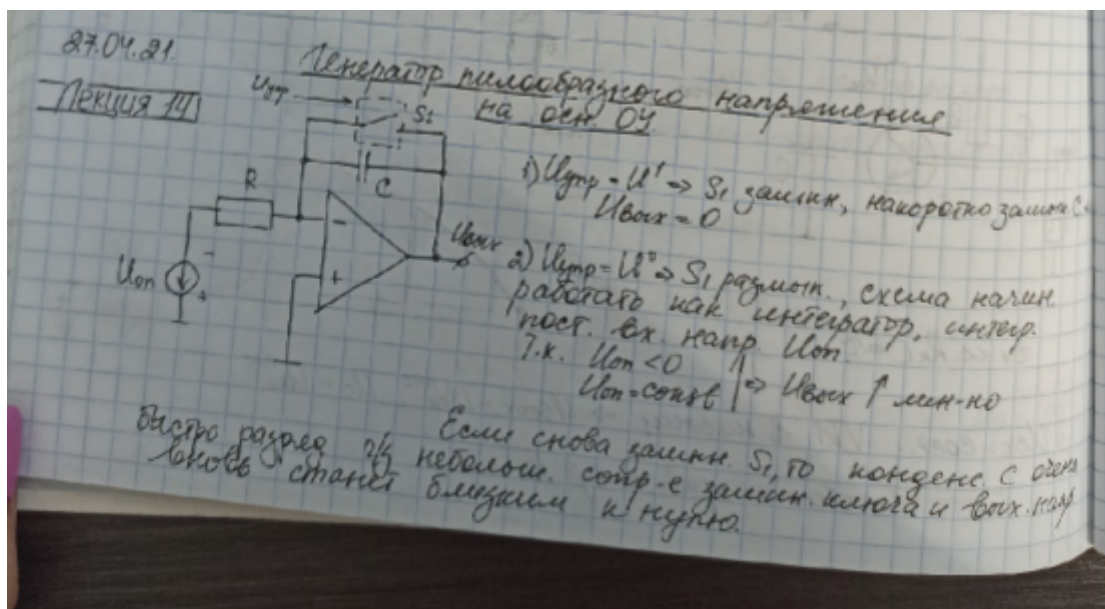 27.04.21.
Лекция 14
Генератор пилообразного напряжения
на осн. ОУ
Uупр
S1
C
R
-
+
Uоп
-
+
Uвых
1) Uупр = U' => S1 замкн, накоротко замык C.
Uвых = 0
2) Uупр = U° => S1 размык., схема начин.
работать как интегратор, интегр.
пост. вх. напр. Uоп.
Т.к. Uоп < 0
Uоп = const => Uвых ↑ лин-но
Если снова замкн. S1, то конденс. C очень
быстро разряд ч/з небольш. сопр-е замкн. ключа и вых. напр
вновь станет близким к нулю.